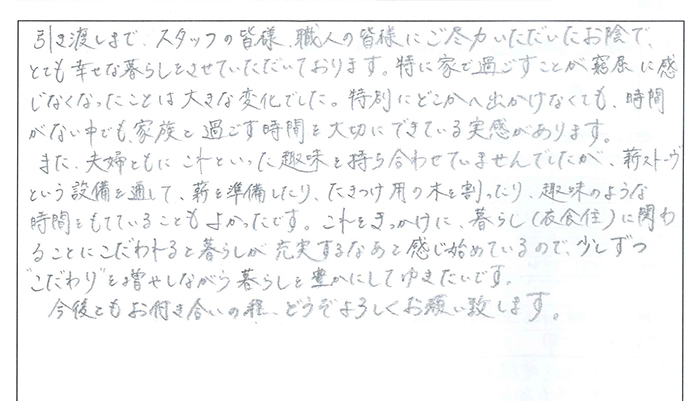 引き渡しまで、スタッフの皆様、職人の皆様にご尽力いただいたお陰で、
とても幸せな暮らしをさせていただいております。特に家で過ごすことが窮屈に感
じなくなったことは大きな変化でした。特別にどこかへ出かけなくても、時間
がない中でも、家族と過ごす時間を大切にできている実感があります。
また、夫婦ともにこれといった趣味を持ち合わせていませんでしたが、薪ストーヴ
という設備を通して、薪を準備したり、たきつけ用の木を割ったり、趣味のような
時間をもてていることもよかったです。これをきっかけに、暮らし(衣食住)に関わ
ることにこだわれると暮らしが充実するなあと感じ始めているので、少しずつ
"こだわり"を増やしながら暮らしを豊かにしてゆきたいです。
今後ともお付き合いの程、どうぞよろしくお願い致します。